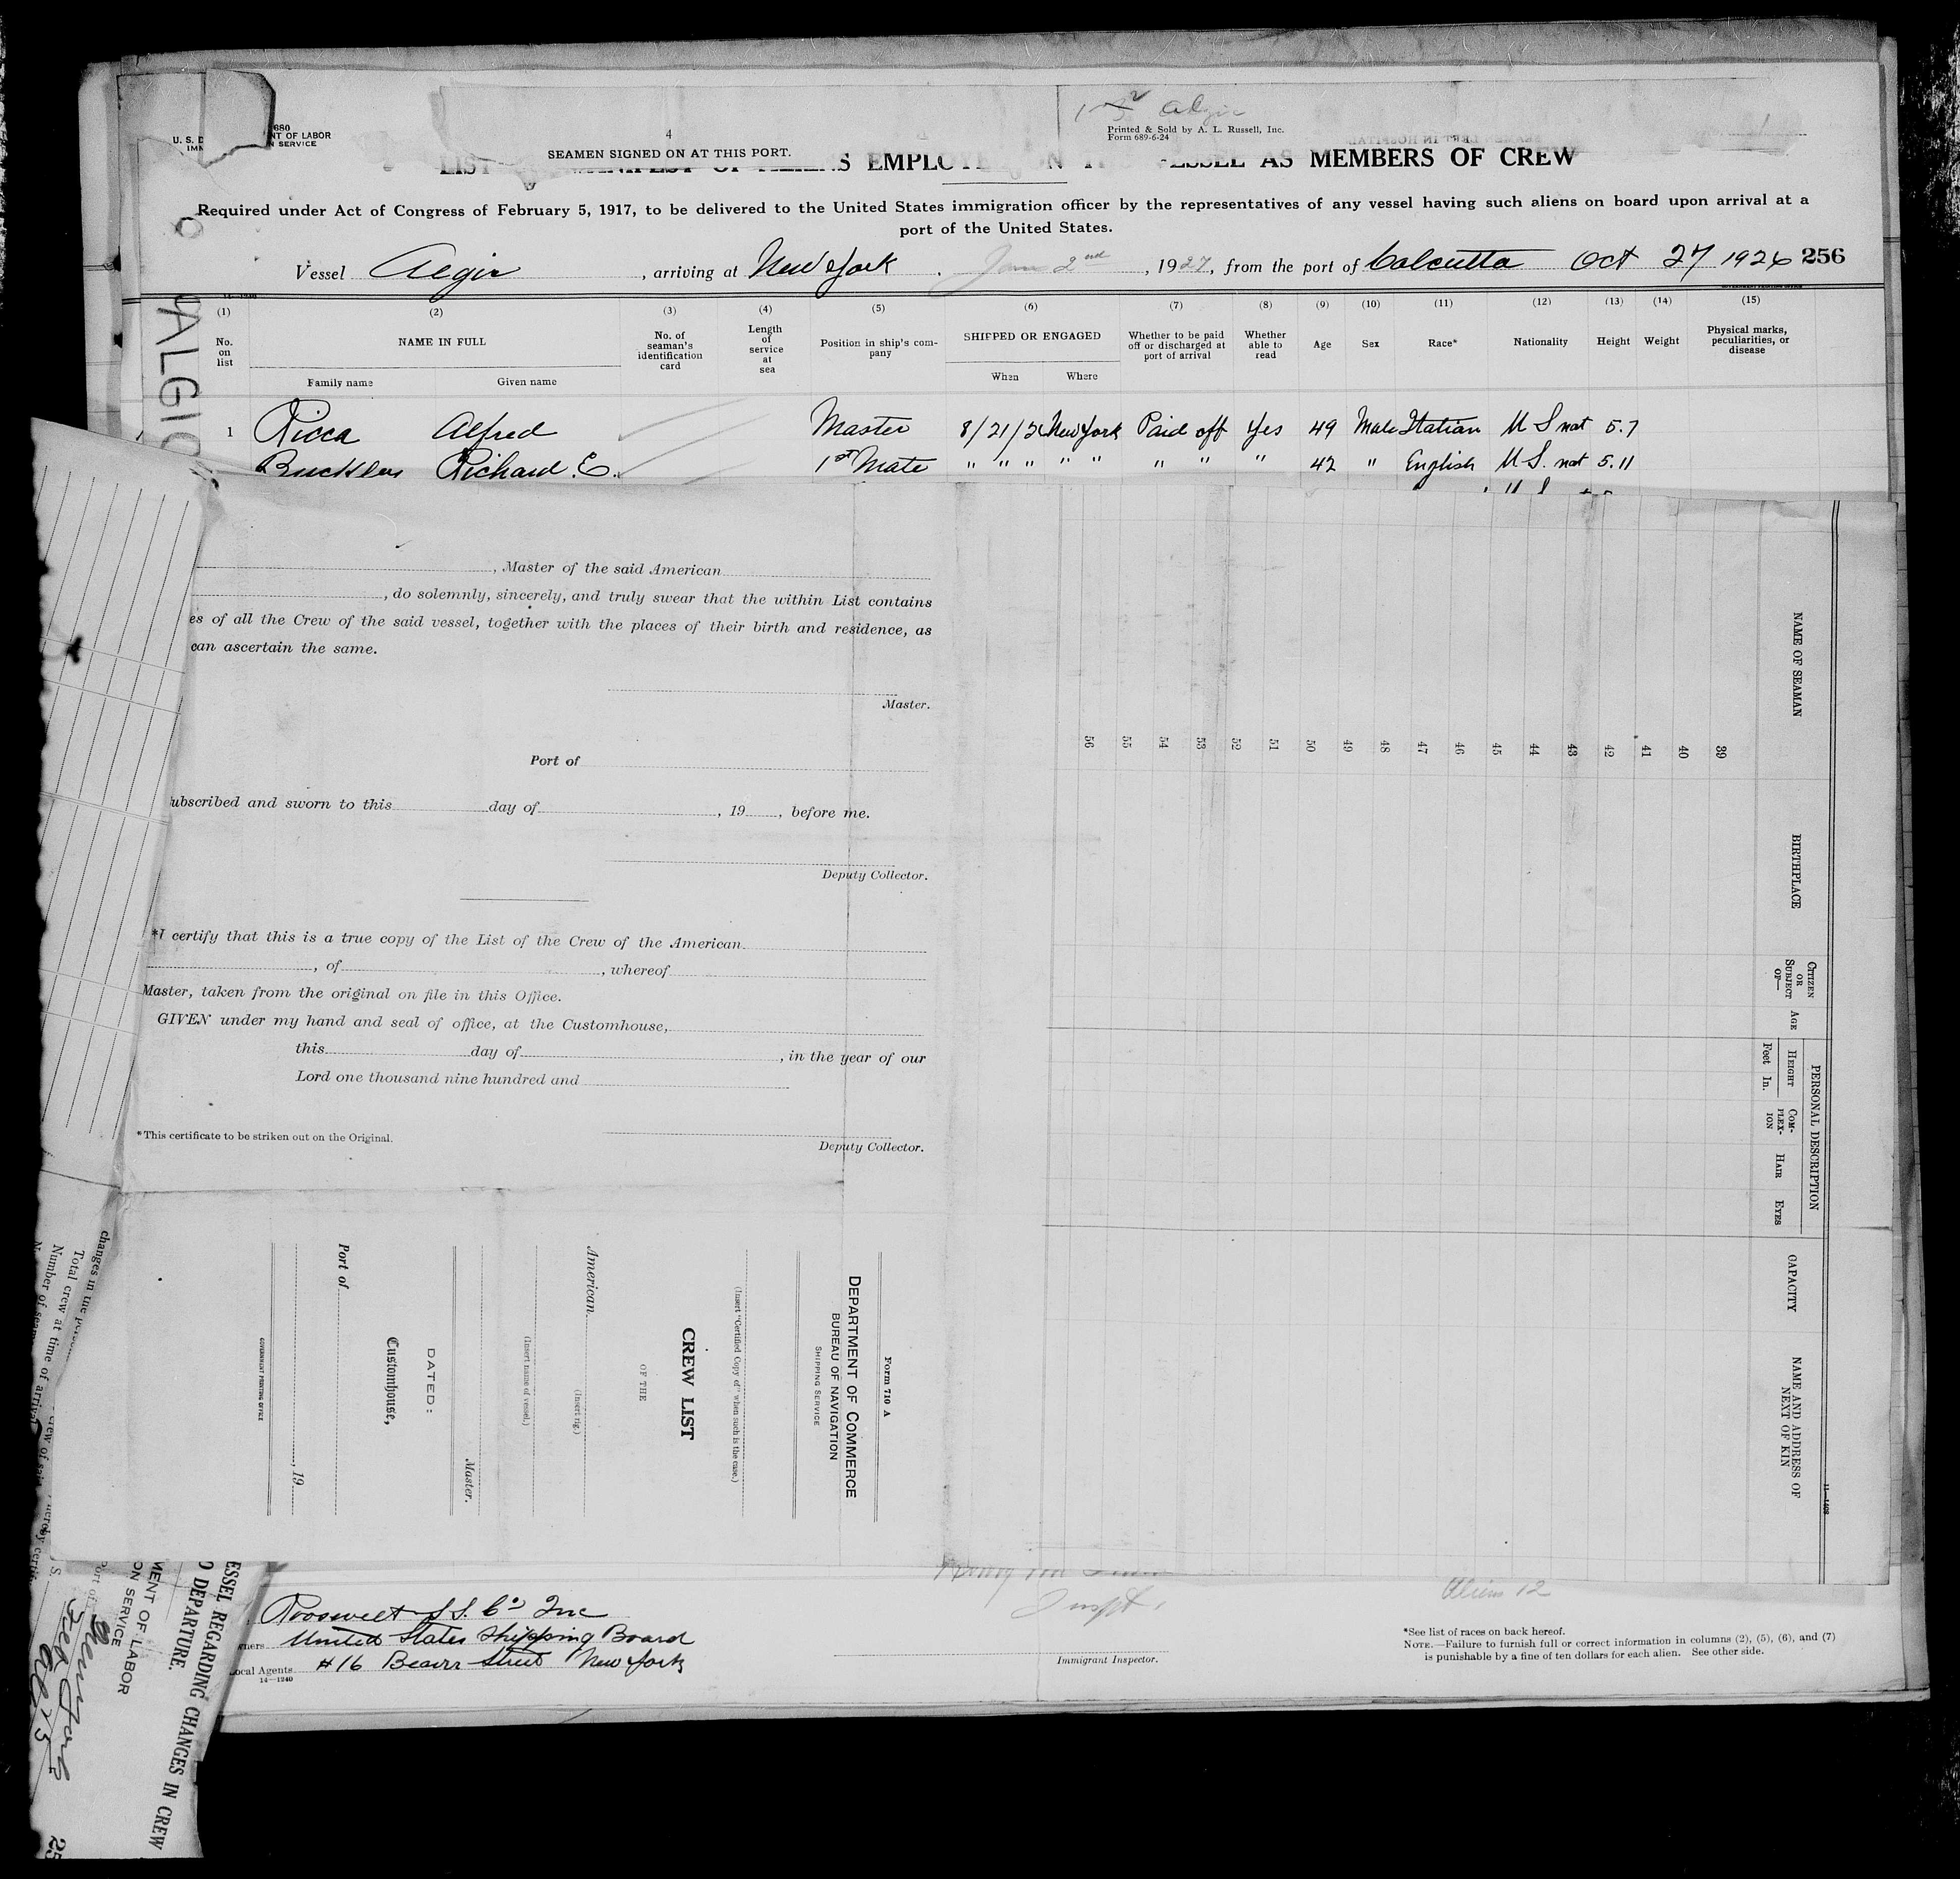 1 Algic
Printed & Sold by A. L. Russell, Inc.
Form 689-6-24
680
U. S. D NT OF LABOR
IMM N SERVICE
4
SEAMEN SIGNED ON AT THIS PORT.
LIST MANIFEST OF ALIENS EMPLOYE N ESSEL AS MEMBERS OF CREW
Required under Act of Congress of February 5, 1917, to be delivered to the United States immigration officer by the representatives of any vessel having such aliens on board upon arrival at a
port of the United States.
Vessel Aegir, arriving at New York, Jan 2nd, 1927, from the port of Calcutta Oct 27 1926 256
ALGIC
(1) (2) (3) (4) (5) (6) (7) (8) (9) (10) (11) (12) (13) (14) (15)
No. on list
NAME IN FULL
Family name Given name
No. of seaman's identification card
Length of service at sea
Position in ship's company
SHIPPED OR ENGAGED
When Where
Whether to be paid off or discharged at port of arrival
Whether able to read
Age
Sex
Race*
Nationality
Height
Weight
Physical marks, peculiarities, or disease
1 Ricca Alfred Master 8/21/26 New York Paid off Yes 49 Male Italian U S nat 5.7
Richard E. 1st Mate " " " " " " " " 42 " English U S. nat 5.11
, Master of the said American
, do solemnly, sincerely, and truly swear that the within List contains
es of all the Crew of the said vessel, together with the places of their birth and residence, as
can ascertain the same.
Master.
Port of
ubscribed and sworn to this day of , 19 , before me.
Deputy Collector.
*I certify that this is a true copy of the List of the Crew of the American
, of , whereof
Master, taken from the original on file in this Office.
GIVEN under my hand and seal of office, at the Customhouse,
this day of , in the year of our
Lord one thousand nine hundred and
*This certificate to be striken out on the Original.
Deputy Collector.
Form 710 A
DEPARTMENT OF COMMERCE
BUREAU OF NAVIGATION
SHIPPING SERVICE
(Insert "Certified Copy of" when such is the case.)
CREW LIST
OF THE
American
(Insert rig.)
(Insert name of vessel.)
Master.
DATED:
Customhouse,
Port of
, 19
GOVERNMENT PRINTING OFFICE
NAME OF SEAMAN
BIRTHPLACE
CITIZEN OR SUBJECT OF—
AGE
PERSONAL DESCRIPTION
HEIGHT
Feet In.
COMPLEXION
HAIR
EYES
CAPACITY
NAME AND ADDRESS OF NEXT OF KIN
39
40
41
42
43
44
45
46
47
48
49
50
51
52
53
54
55
56
changes in the
Total crew at time of arrival
Number of
ESSEL REGARDING CHANGES IN CREW
O DEPARTURE.
MENT OF LABOR
ON SERVICE
New York
Roosevelt S S. Co Inc
wners United States Shipping Board
ocal Agents #16 Beaver Street New York
14—1240
Inspt.
Immigrant Inspector.
Aliens 12
*See list of races on back hereof.
NOTE.—Failure to furnish full or correct information in columns (2), (5), (6), and (7)
is punishable by a fine of ten dollars for each alien. See other side.